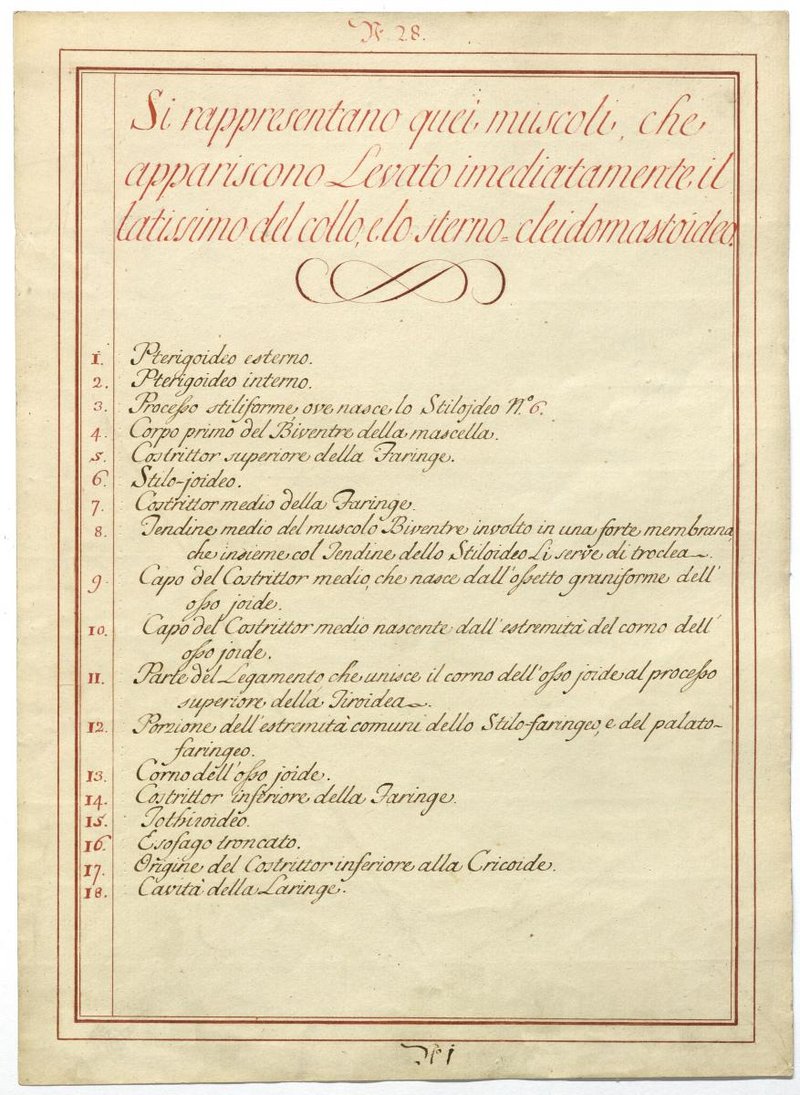 N. 28.
Si rappresentano quei muscoli, che
appariscono Levato imediatamente il
latissimo del collo, e lo sterno=cleidomastoideo.
1. Pterigoideo esterno.
2. Pterigoideo interno.
3. Processo stiliforme, ove nasce lo Stilojdeo N.º 6.
4. Corpo primo del Biventre della mascella.
5. Costrittor superiore della Faringe.
6. Stilo-joideo.
7. Costrittor medio della Faringe.
8. Tendine medio del muscolo Biventre involto in una forte membrana,
che insieme col Tendine dello Stiloideo Li serve di troclea.
9. Capo del Costrittor medio, che nasce dall'ossetto graniforme dell'
osso joide.
10. Capo del Costrittor medio nascente dall'estremità del corno dell'
osso joide.
11. Parte del Legamento che unisce il corno dell'osso joide al processo
superiore della Tiroidea.
12. Porzione dell'estremità comuni dello Stilo-faringeo, e del palato-
faringeo.
13. Corno dell'osso joide.
14. Costrittor inferiore della Faringe.
15. Jothiroideo.
16. Esofago troncato.
17. Origine del Costrittor inferiore alla Cricoide.
18. Cavità della Laringe.